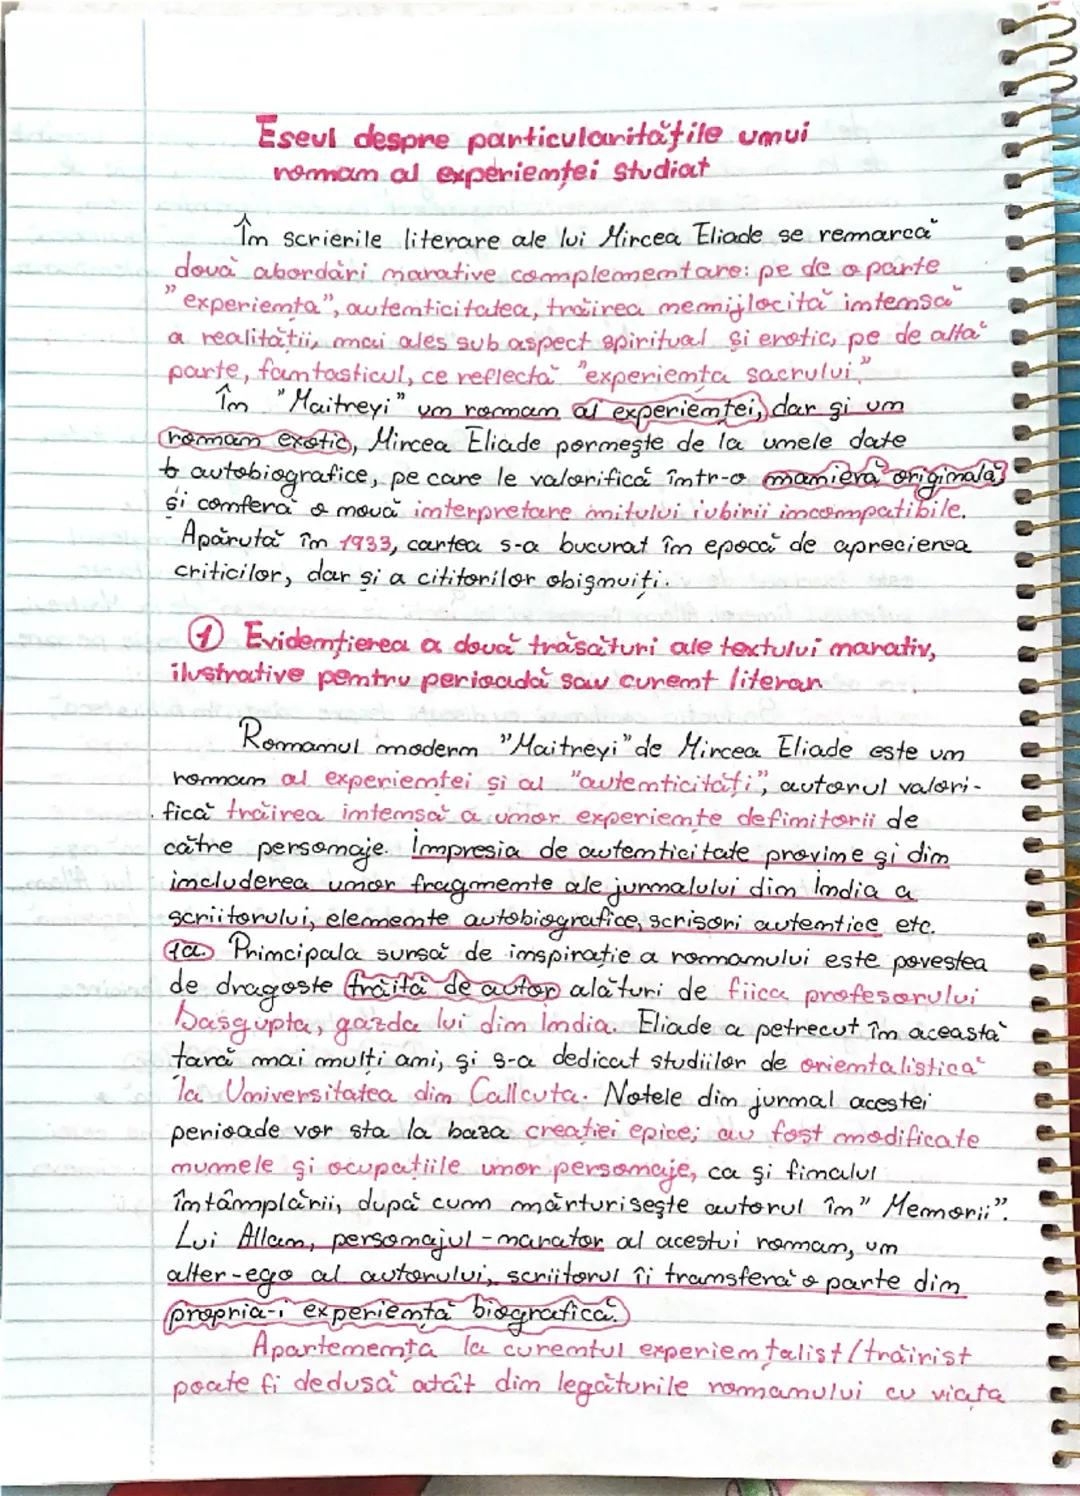 Eseul despre particularitățile unui
roman al experienței studiat
În scrierile literare ale lui Mircea Eliade se remarcă
două abordări narative complementare: pe de o parte
"experiența", autenticitatea, trăirea nemijlocită intensă
a realității, mai ales sub aspect spiritual și erotic, pe de altă
parte, fantasticul, ce reflectă "experiența sacrului."
În "Maitreyi" un roman al experienței, dar și un
roman exotic, Mircea Eliade pornește de la unele date
autobiografice, pe care le valorifică într-o manieră originală
și conferă o nouă interpretare mitului iubirii incompatibile.
Apărută în 1933, cartea s-a bucurat în epocă de aprecierea
criticilor, dar și a cititorilor obișnuiți.
1 Evidențierea a două trăsături ale textului narativ,
ilustrative pentru perioadă sau curent literar
Romanul modern "Maitreyi" de Mircea Eliade este un
roman al experienței și al "autenticități", autorul valori-
fică trăirea intensă a unor experiențe definitorii de
către personaje. Impresia de autenticitate provine și din
includerea unor fragmente ale jurnalului din India a
scriitorului, elemente autobiografice, scrisori autentice etc.
1a. Principala sursă de inspirație a romanului este povestea
de dragoste trăită de autor alături de fiica profesorului
Dasgupta, gazda lui din India. Eliade a petrecut în această
țară mai mulți ani, și s-a dedicat studiilor de orientalistică
la Universitatea din Callcuta. Notele din jurnal acestei
perioade vor sta la baza creației epice; au fost modificate
numele și ocupațiile unor personaje, ca și finalul
întâmplării, după cum mărturisește autorul în "Memorii".
Lui Allan, personajul-narator al acestui roman, un
alter-ego al autorului, scriitorul îi transferă o parte din
propria-i experiență biografică.
Apartenența la curentul experiențalist/trăirist
poate fi dedusă atât din legăturile romanului cu viața